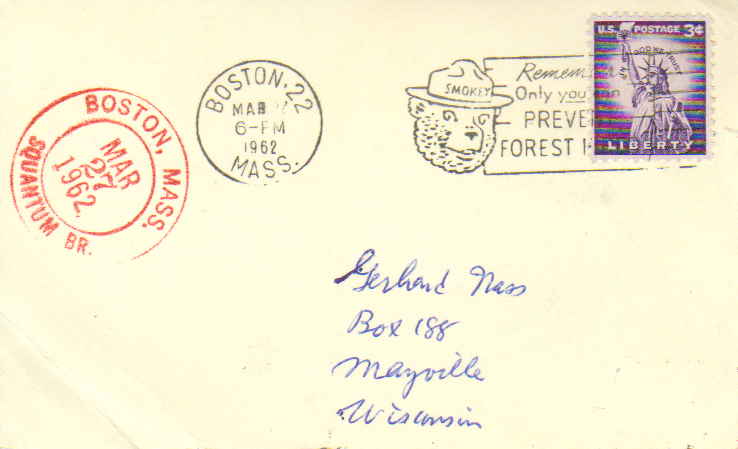 BOSTON, MASS.
MAR
27
1962
SQUANTUM BR.
BOSTON, 22
MAR
6-PM
1962
MASS.
SMOKEY
Only you
PREVE
FOREST
U.S. POSTAGE 3¢
IN GOD WE TRUST
LIBERTY
Gerhard Nass
Box 188
Mayville
Wisconsin